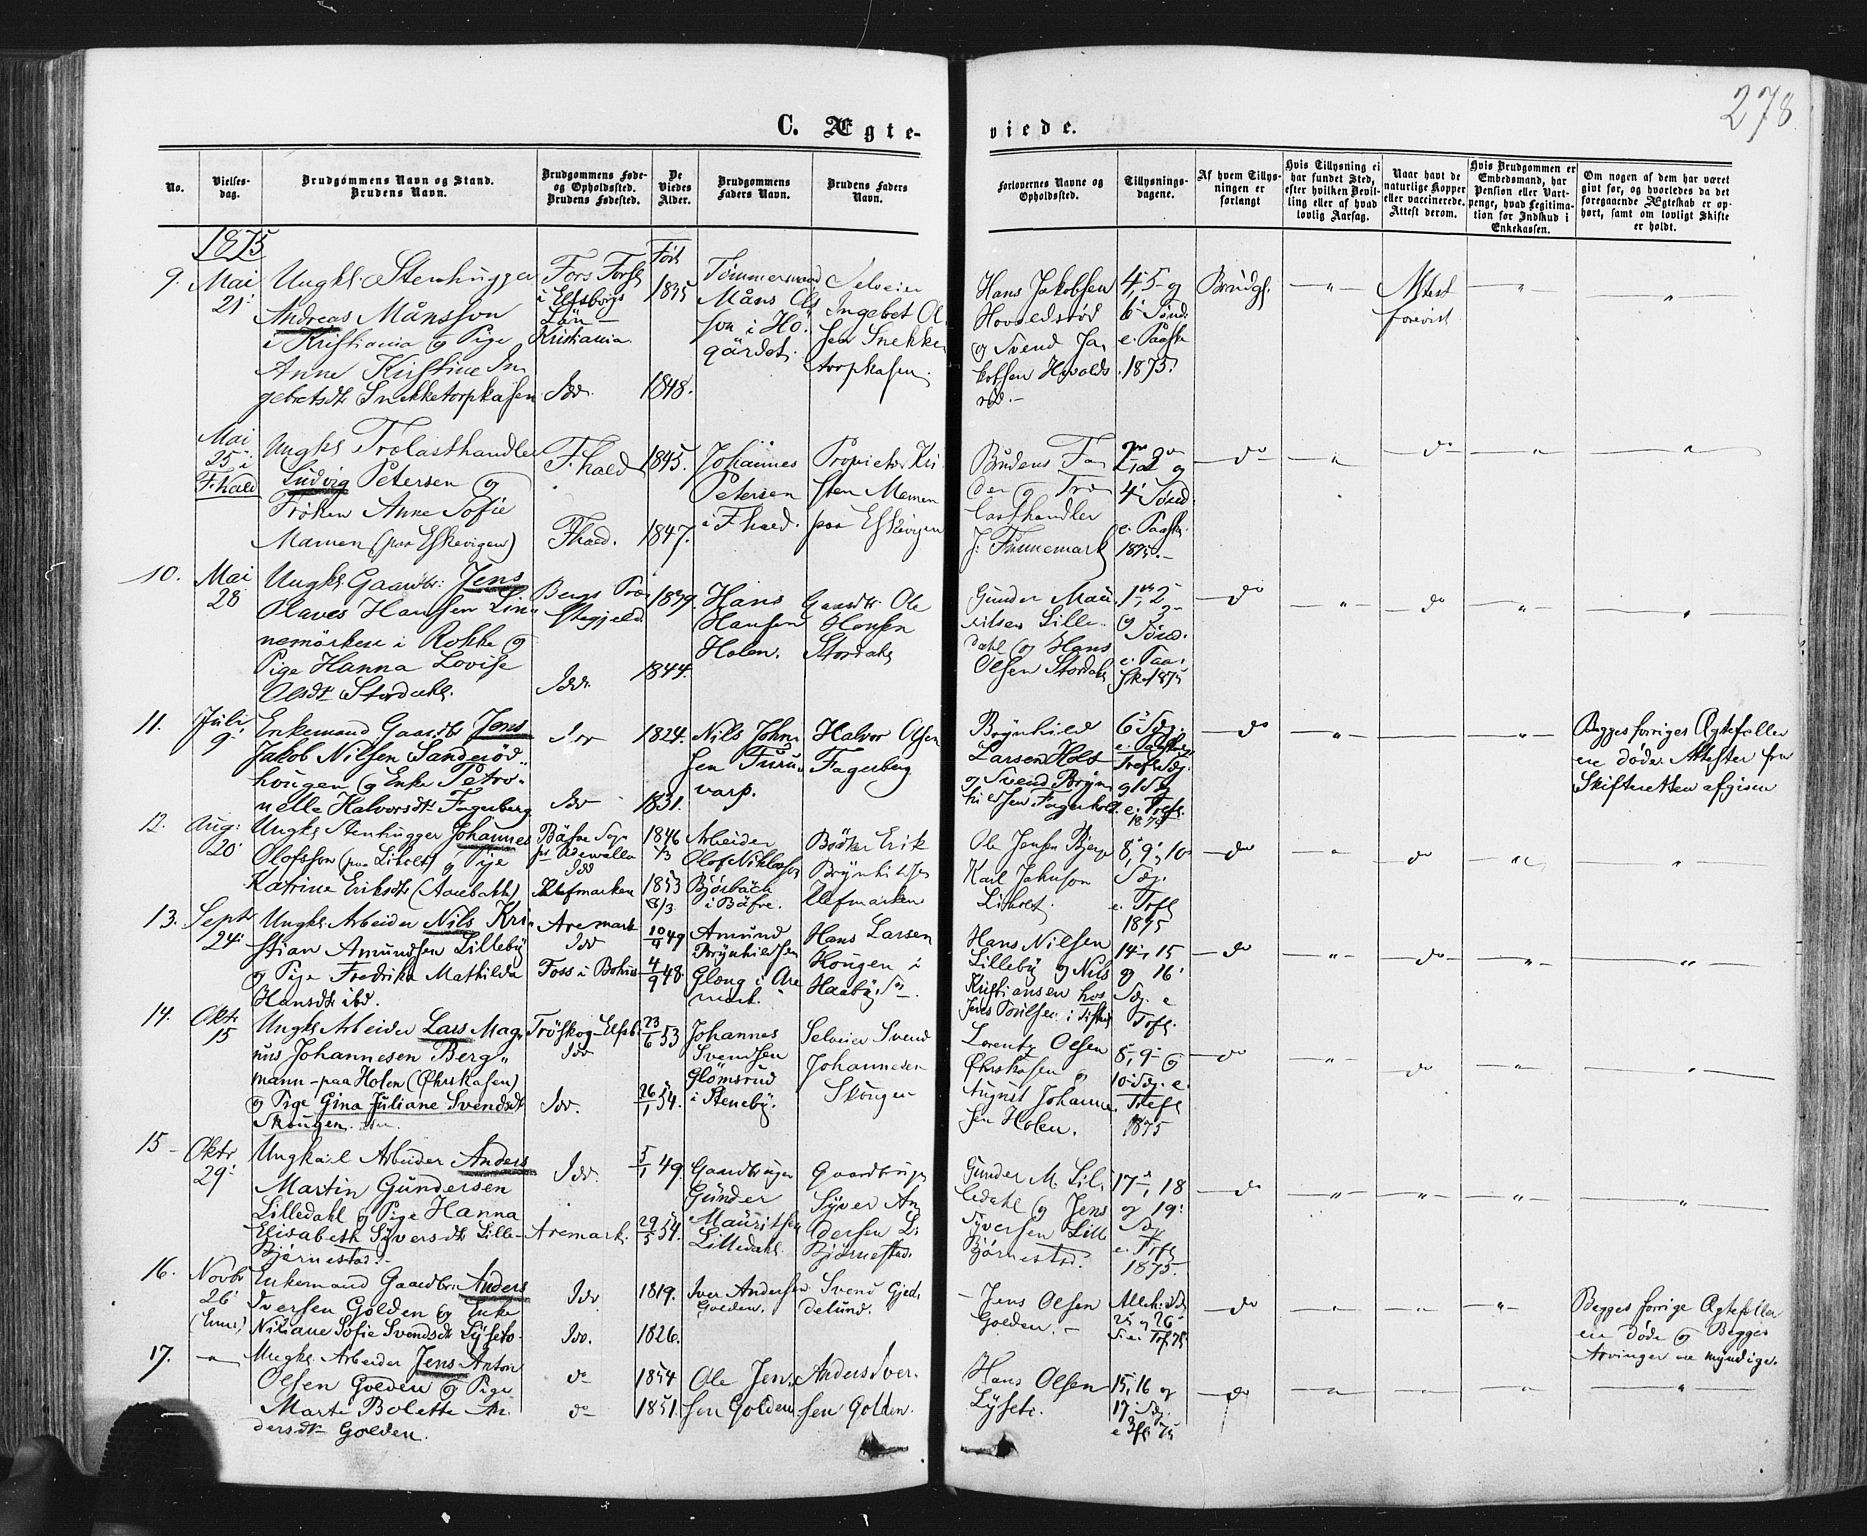 278
C. Ægte-
viede.
No.
Vielses-
dag.
Brudgommens Navn og Stand.
Brudens Navn.
Brudgommens Føde-
og Opholdssted.
Brudens Fødested.
De
Viedes
Alder.
Brudgommens
Faders Navn.
Brudens Faders
Navn.
Forlovernes Navne og
Opholdssted.
Tillysnings-
dagene.
Af hvem Tillys-
ningen er
forlangt
Hvis Tillysning ei
har fundet Sted,
efter hvilken Bevil-
ling eller af hvad
lovlig Aarsag.
Naar havt de
naturlige Kopper
eller vaccinerede.
Attest derom.
Hvis Brudgommen er
Embedsmand, har
Pension eller Vart-
penge, hvad Legitima-
tion for Indskud i
Enkekassen.
Om nogen af dem har været
gift før, og hvorledes da det
foregaaende Ægteskab er op-
hørt, samt om lovligt Skifte
er holdt.
1875
Født
9.
Mai
21.
Ungk. Stenhugger
Andreas Månsson
i Kristiania og Pige
Anne Kirstine In
gebretsdt. Snekketorpkasen
Fors Forsl
i Elfsborgs
Län
Kristiania.
Idd.
1835
1848.
Tømmermand
Måns Ols
son i Hö
gärdet.
Selveier
Ingebret Ol
sen Snekke
torpkasen.
Hans Jakobsen
Hovaldsrød
og Svend Ja
kobsen Hovalds
rød.
4, 5 og
6 Sønd.
e. Paaske
1875.
Brudg.
Attest
forevist
Mai
25 i
F.hald
Ungk. Trelasthandler
Ludvig Petersen og
Frøken Anne Sofie
Mamen (paa Eskevigen)
F.hald
Fhald.
1845.
1847.
Johannes
Petersen
i Fhald.
Propietær Kri
sten Mamen
paa Eskevigen
Brudens Fa
der og Tre
lasthandler
J. Finnemark
1, 2 og
4 Sønd.
e. Paaske
1875.
do
do
10.
Mai
28
Ungk. Gaardbr. Jens
Olaves Hansen Lin
nemørken i Rokke og
Pige Hanna Lovise
Olsdt. Stordahl.
Bergs Præ
stegjeld
Idd.
1849.
1844.
Hans
Hansen
Holen.
Gaardbr. Ole
Hansen
Stordahl
Gunder Mau
ritsen Lille
dahl og Hans
Olsen Stordahl
1, 2
og 3
Sønd.
e. Paa
ske 1875
do
do
11.
Juli
9
Enkemand Gaardbr. Jens
Jakob Nilsen Sanderød
hougen og Enke Petro
nelle Halvorsdt. Fagerberg
Idd
Idd
1824.
1831.
Nils John
sen Furu
varp.
Halvor Olsen
Fagerberg
Brynhild
Larsen Hols
og Svend Bryn
hildsen Fagerholt
6 Sdg.
e. Paaske
Trefh.Sdg.
og 1 Sdg
e. Trefh.
do
Begges forriges Ægtefæller
ere døde. Attester fra
Skifteretten afgiven
12.
Aug:
20
Ungk. Stenhugger Johannes
Olofsson (paa Liholt) og Pige
Katrine Eriksdt. (Aarbakke)
Bäfve Sogn
Idd
Ulfmarken
1846
1853
8/3
Arbeider
Olof Niklasson
Björbäck
i Bäfve.
Bødker Erik
Brynhildsen
Ulfmarken
Ole Jensen Bjerge
Karl Johnson
Liholt.
8, 9 og 10
Sdg.
e. Trefh
1875
do
do
13.
Septr
24.
Ungk. Arbeider Nils Kri
stian Amundsen Lilleby
og Pige Fredrika Mathilda
Hansdt. ibd.
Aremark
Idd
Foss i Bohus
10/4 49
4/9 48.
Amund
Brynhildsen
Gløng i Are
mark.
Hans Larsen
Hougen i
Haaby
Hans Nilsen
Lilleby og Nils
Kristiansen hos
Jens Poulsen i Tisted
14, 15
og 16
Sdg. e
Trefh.
do
do
14.
Oktr
15
Ungk. Arbeider Lars Mag
nus Johannesen Berg
mann paa Holen (Ørskasen)
og Pige Gina Juliane Svendsdt
Skougen.
Tröskog Elfsb
Idd
Idd.
23/6 53
26/1 54.
Johannes
Svendsen
Glömsrud
i Steneby.
Selveier Svend
Johannesen
Skougen
Lorentz Olsen
Ørskasen og
August Johanne
sen Holen.
8, 9 og
10 Sdg. e.
Trefh
1875
do
do
15
Oktr
29.
Ungkarl Arbeider Anders
Martin Gundersen
Lilledahl og Pige Hanna
Elisabeth Syversdt. Lille
Bjørnestad.
Idd.
Aremark.
5/1 49.
29/5 54.
Gaardbruger
Gunder
Mauritsen
Lilledahl.
Gaardbruger
Syver An
dersen L.
Bjørnestad.
Gunder M. Lil
ledahl og Jens
Syversen Lille
Bjørnestad.
17, 18
og 19
Sdg
e. Trefh
1875.
do
16.
Novbr
26
Enkemand Gaardbr. Anders
Iversen Golden og Enke
Niliane Sofie Svendsdt. Lyseto
Idd
Idd.
1819.
1826.
Iver Andersen
Golden.
Svend Gjed
delund.
Jens Olsen
Golden.
25 og 26
do
Begges forrige Ægtefæller
ere døde og Begges
Arvinger ere myndige.
17.
Ungk. Arbeider Jens Anton
Olsen Golden og Pige
Marte Bolette An
dersdt. Golden.
do
do
1854
1851.
Ole Jen
sen Golden
Anders Iver
sen Golden.
Hans Olsen
Lysete.
15, 16 og
17 Sdg.
do